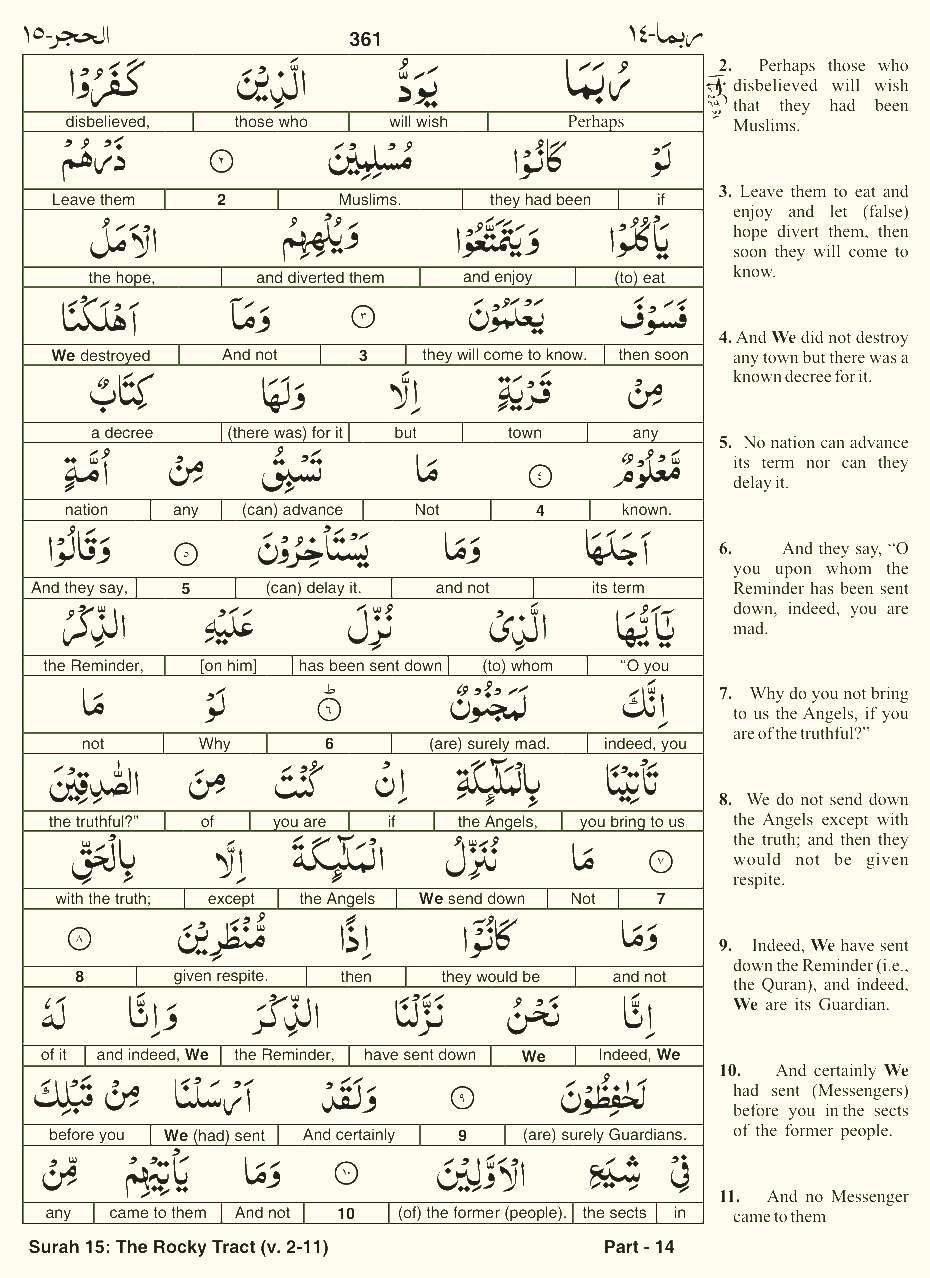 الحجر-١٥ 361 ربما-١٤
رُبَمَا يَوَدُّ الَّذِيْنَ كَفَرُوْا
disbelieved, those who will wish Perhaps
لَوْ كَانُوْا مُسْلِمِيْنَ ٢ ذَرْهُمْ
Leave them 2 Muslims. they had been if
يَاْكُلُوْا وَيَتَمَتَّعُوْا وَيُلْهِهِمُ الْاَمَلُ
the hope, and diverted them and enjoy (to) eat
فَسَوْفَ يَعْلَمُوْنَ ٣ وَمَاۤ اَهْلَكْنَا
We destroyed And not 3 they will come to know. then soon
مِنْ قَرْيَةٍ اِلَّا وَلَهَا كِتَابٌ
a decree (there was) for it but town any
مَّعْلُوْمٌ ٤ مَا تَسْبِقُ مِنْ اُمَّةٍ
nation any (can) advance Not 4 known.
اَجَلَهَا وَمَا يَسْتَاْخِرُوْنَ ٥ وَقَالُوْا
And they say, 5 (can) delay it. and not its term
يٰۤاَيُّهَا الَّذِىْ نُزِّلَ عَلَيْهِ الذِّكْرُ
the Reminder, [on him] has been sent down (to) whom “O you
اِنَّكَ لَمَجْنُوْنٌ ٦ ط لَوْ مَا
not Why 6 (are) surely mad. indeed, you
تَاْتِيْنَا بِالْمَلٰٓئِكَةِ اِنْ كُنْتَ مِنَ الصّٰدِقِيْنَ
the truthful?” of you are if the Angels, you bring to us
٧ مَا نُنَزِّلُ الْمَلٰٓئِكَةَ اِلَّا بِالْحَقِّ
with the truth; except the Angels We send down Not 7
وَمَا كَانُوْۤا اِذًا مُّنْظَرِيْنَ ٨
8 given respite. then they would be and not
اِنَّا نَحْنُ نَزَّلْنَا الذِّكْرَ وَاِنَّا لَهٗ
of it and indeed, We the Reminder, have sent down We Indeed, We
لَحٰفِظُوْنَ ٩ وَلَقَدْ اَرْسَلْنَا مِنْ قَبْلِكَ
before you We (had) sent And certainly 9 (are) surely Guardians.
فِىْ شِيَعِ الْاَوَّلِيْنَ ١٠ وَمَا يَاْتِيْهِمْ مِّنْ
any came to them And not 10 (of) the former (people). the sects in
2. Perhaps those who
disbelieved will wish
that they had been
Muslims.
3. Leave them to eat and
enjoy and let (false)
hope divert them, then
soon they will come to
know.
4. And We did not destroy
any town but there was a
known decree for it.
5. No nation can advance
its term nor can they
delay it.
6. And they say, “O
you upon whom the
Reminder has been sent
down, indeed, you are
mad.
7. Why do you not bring
to us the Angels, if you
are of the truthful?”
8. We do not send down
the Angels except with
the truth; and then they
would not be given
respite.
9. Indeed, We have sent
down the Reminder (i.e.,
the Quran), and indeed,
We are its Guardian.
10. And certainly We
had sent (Messengers)
before you in the sects
of the former people.
11. And no Messenger
came to them
Surah 15: The Rocky Tract (v. 2-11) Part - 14